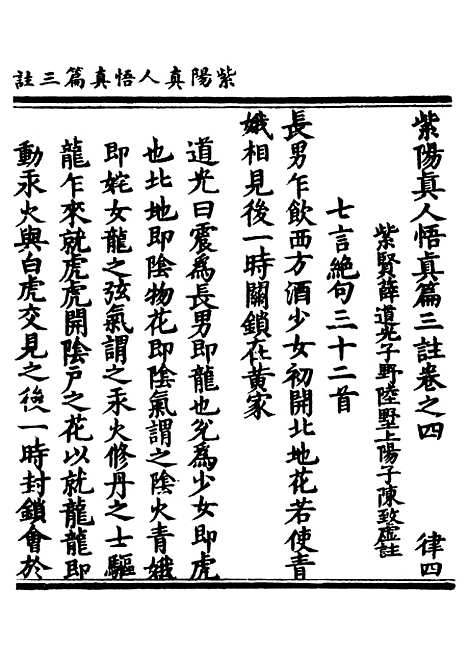 紫陽真人悟真篇三註
紫陽真人悟真篇三註卷之四　律四
紫賢薛道光子野陸墅上陽子陳致虛註
七言絶句三十二首
長男乍飲西方酒少女初開北地花若使青
娥相見後一時關鎖在黃家
道光曰震為長男即龍也兊為少女即虎
也北地即陰物花即陰氣謂之陰火青娥
即姹女龍之弦氣謂之汞火修丹之士驅
龍乍來就虎虎開陰户之花以就龍龍即
動汞火與白虎交見之後一時封鎖會於